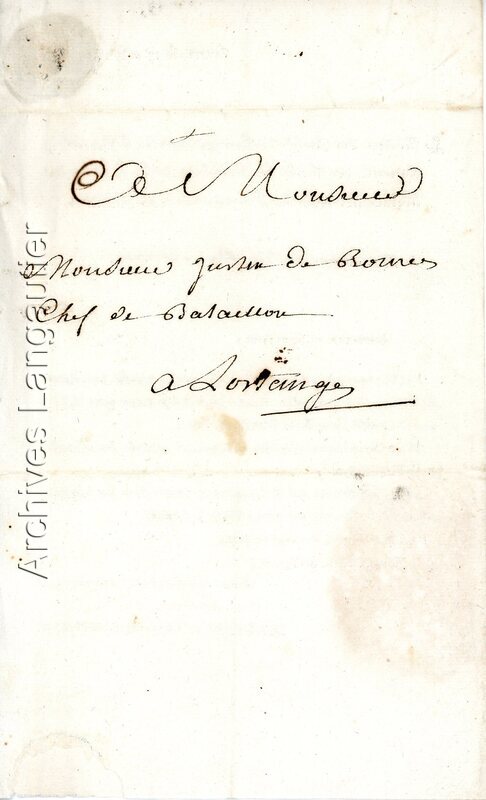 A Monsieur
Monsieur Justin de Bornes
Chef de Bataillon
a Lortanges
Archives Langautier